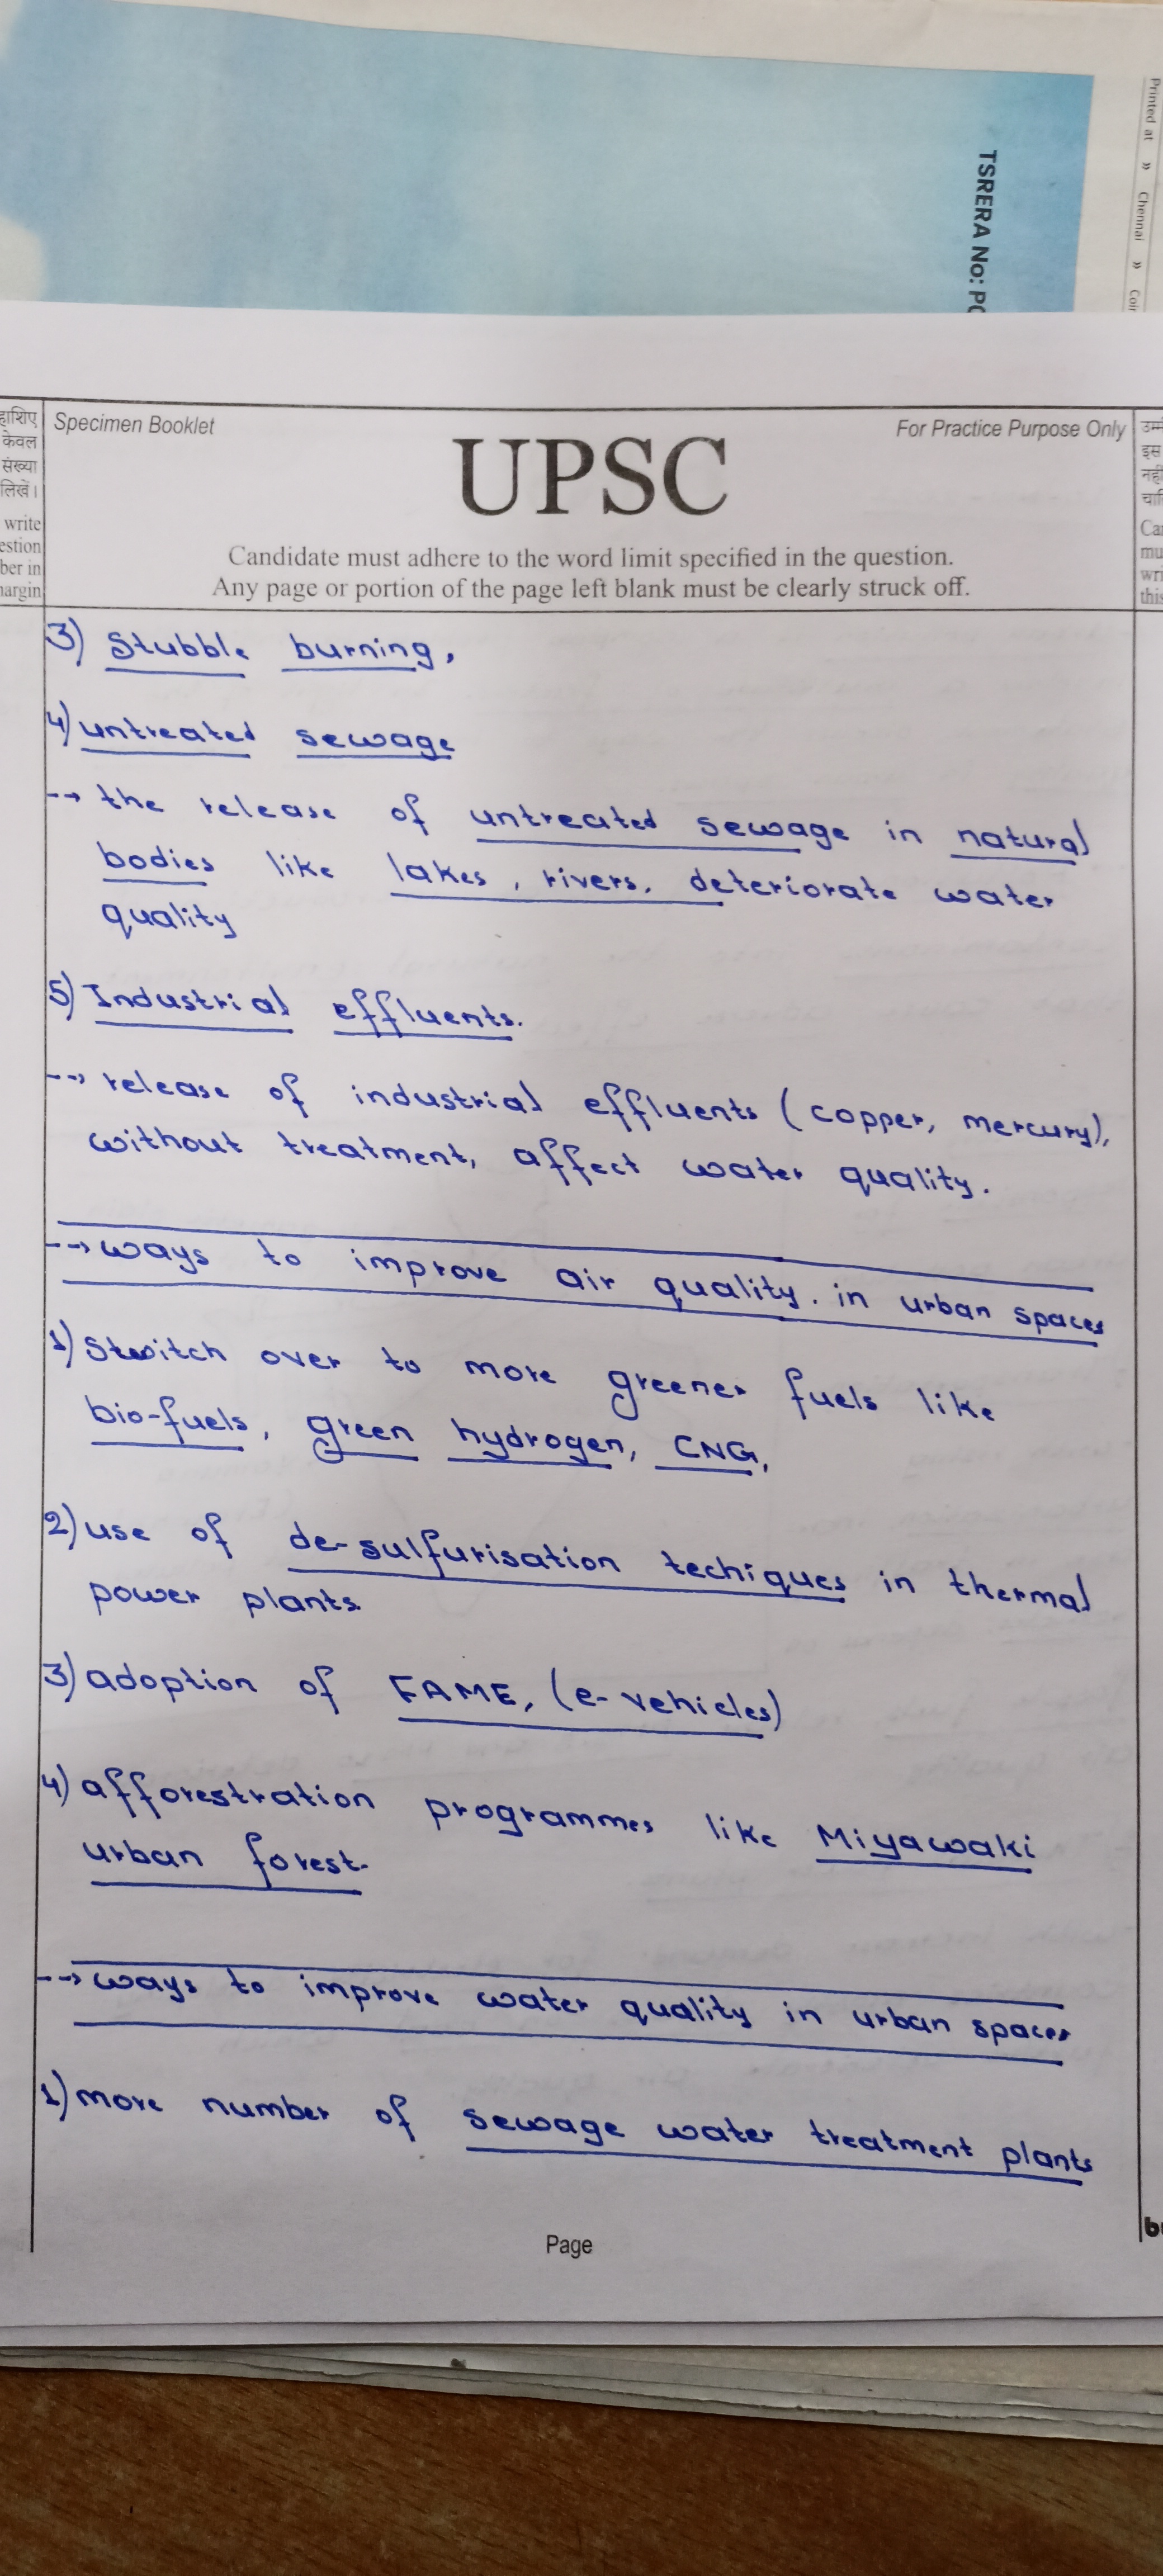 TSRERA No: P
Printed at » Chennai » Coi
हाशिए
केवल
संख्या
लिखें।
write
estion
ber in
nargin
Specimen Booklet
For Practice Purpose Only
UPSC
Candidate must adhere to the word limit specified in the question.
Any page or portion of the page left blank must be clearly struck off.
उम्मी
इस
नही
चाहि
Can
mu
wri
this
3) Stubble burning,
4) untreated sewage
--> the release of untreated sewage in natural
bodies like lakes, rivers, deteriorate water
quality
5) Industrial effluents.
--> release of industrial effluents (copper, mercury),
without treatment, affect water quality.
--> ways to improve air quality. in urban spaces
1) Stwitch over to more greener fuels like
bio-fuels, green hydrogen, CNG,
2) use of de-sulfurisation techiques in thermal
power plants
3) adoption of FAME, (e-vehicles)
4) afforestration programmes like Miyawaki
urban forest.
--> ways to improve water quality in urban spaces
1) more number of sewage water treatment plants
Page